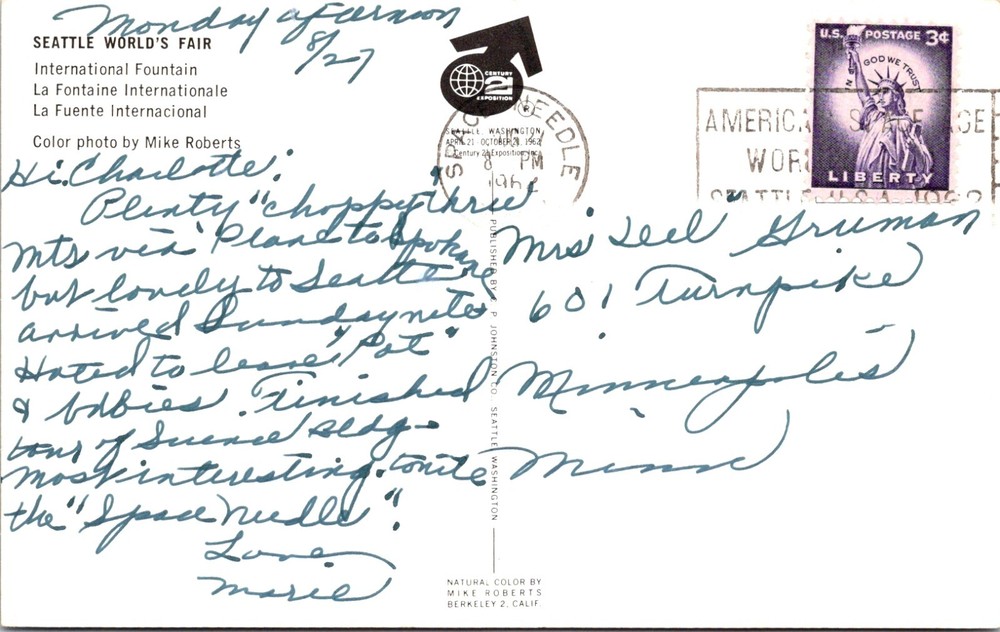 Monday afternoon
8/27
SEATTLE WORLD'S FAIR
International Fountain
La Fontaine Internationale
La Fuente Internacional
Color photo by Mike Roberts
Hi Charlotte:
Plenty "choppy" thru
Mts via Plane to Spokane
but lovely to Seattle
arrived Sunday nite
Hated to leave "Pat"
& babies. Finished
tour of Science Bldg-
most interesting. tonite
the "Space Needle".
Love
Marie
CENTURY
21
EXPOSITION
SEATTLE, WASHINGTON
APRIL 21 - OCTOBER 21, 1962
Century 21 Exposition, Inc.
SPACE NEEDLE
8 PM
1962
AMERICA'S SPACE AGE
WORLD'S
SEATTLE U.S.A. 1962
U.S. POSTAGE 3¢
IN GOD WE TRUST
LIBERTY
Mrs Gruman
601 Turnpike
Minneapolis
Minn
PUBLISHED BY C. P. JOHNSTON CO. SEATTLE WASHINGTON
NATURAL COLOR BY
MIKE ROBERTS
BERKELEY 2, CALIF.